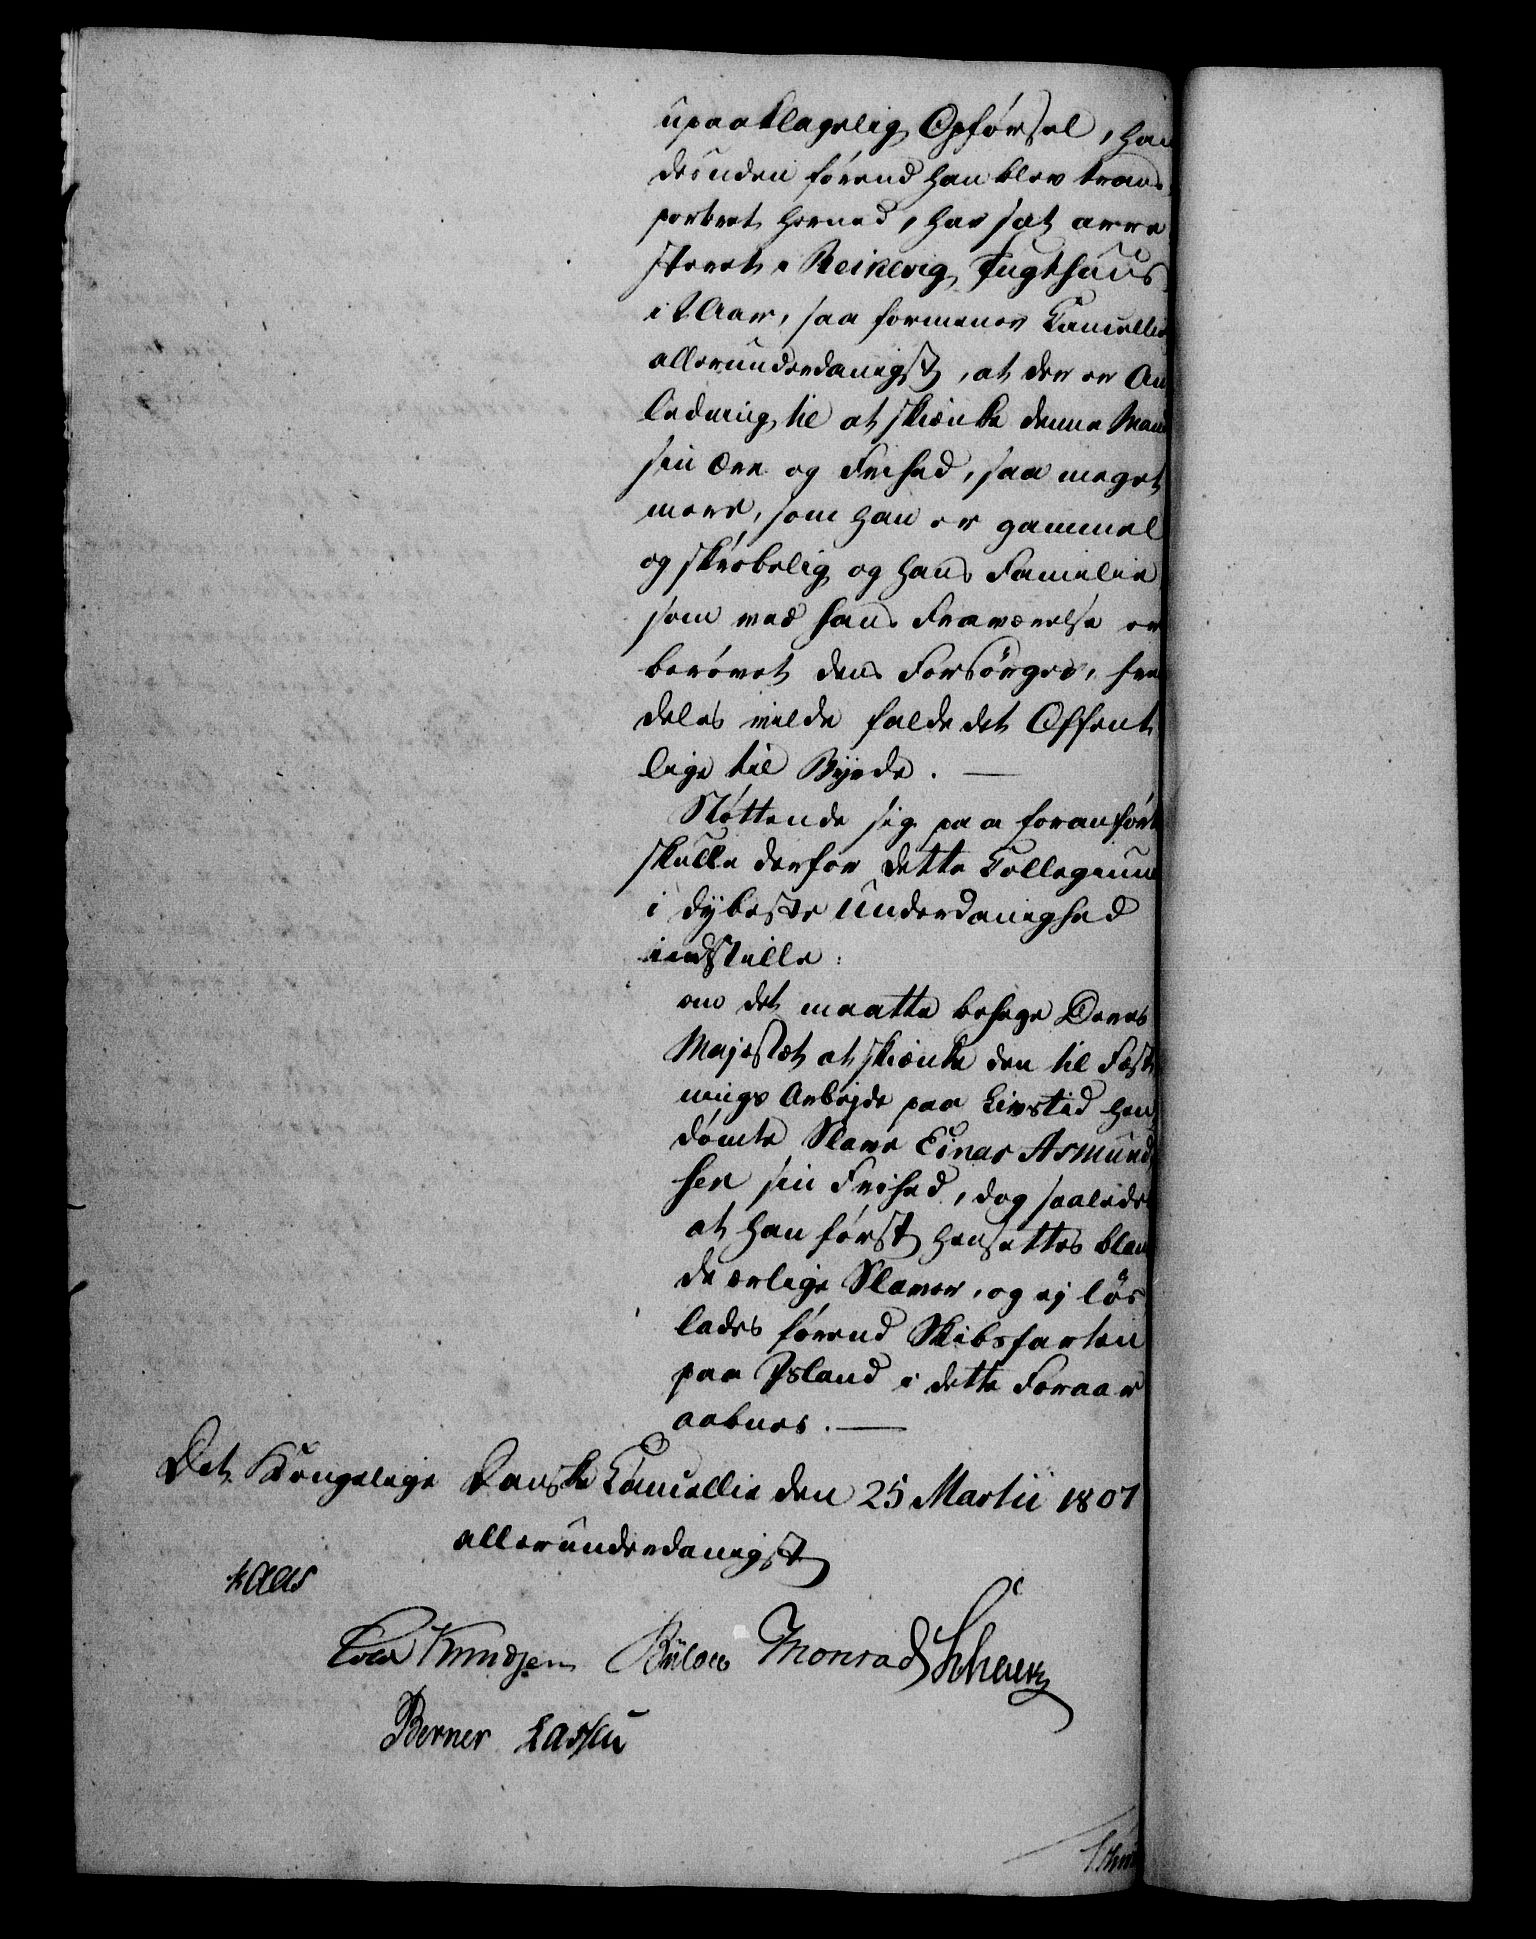 upaaklagelig Opførsel, han
desuden førend han blev trans
portert herned, har sat arre
steret i Reikevig Tugthuus
i 2 Aar, saa formener Cancellie
allerunderdanigst, at der er An
ledning til at skiænke denne Mand
sin Ære og Frihed, saa meget
mere, som han er gammel
og skrøbelig og hans Familie
som ved hans Fraværelse er
berøvet dens Forsørger, frem
deles vilde falde det Offent
lige til Byrde. —
Støttende sig paa foranførte
skulle derfor dette Collegium
i dybeste Underdanighed
indstille:
om det maatte behage Deres
Majestæt at skiænke den til Fæst
nings Arbejde paa Livstid hen
dømte Slave Einar Asmund
sen sin Frihed, dog saaledes
at han først hensættes blan
de ærlige Slaver, og ej løs
lades førend Skibsfarten
paa Island i dette Foraar
aabnes. —
Det Kongelige Danske Cancellie den 25 Martii 1807
allerunderdanigst
Kaas
Knudsen Bülow Monrad
Berner Lassen